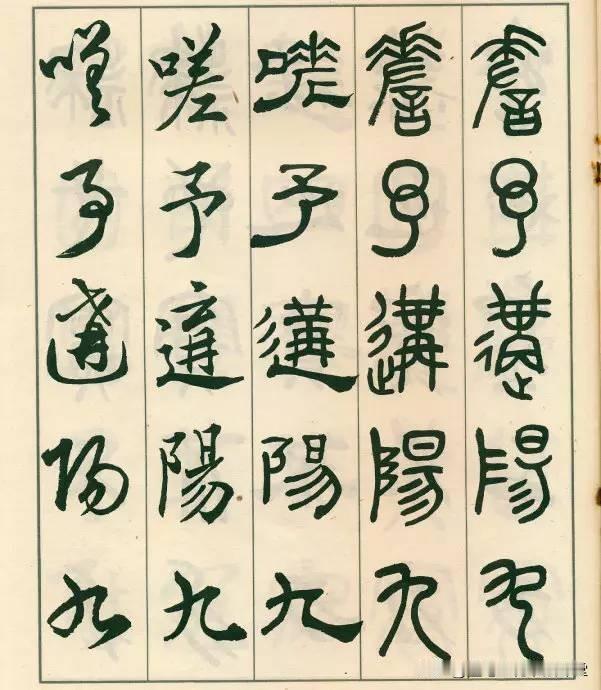 嗟予遘陽九
嗟予遘陽九
嗟予遘陽九
嗟予遘陽九
嗟予遘陽九